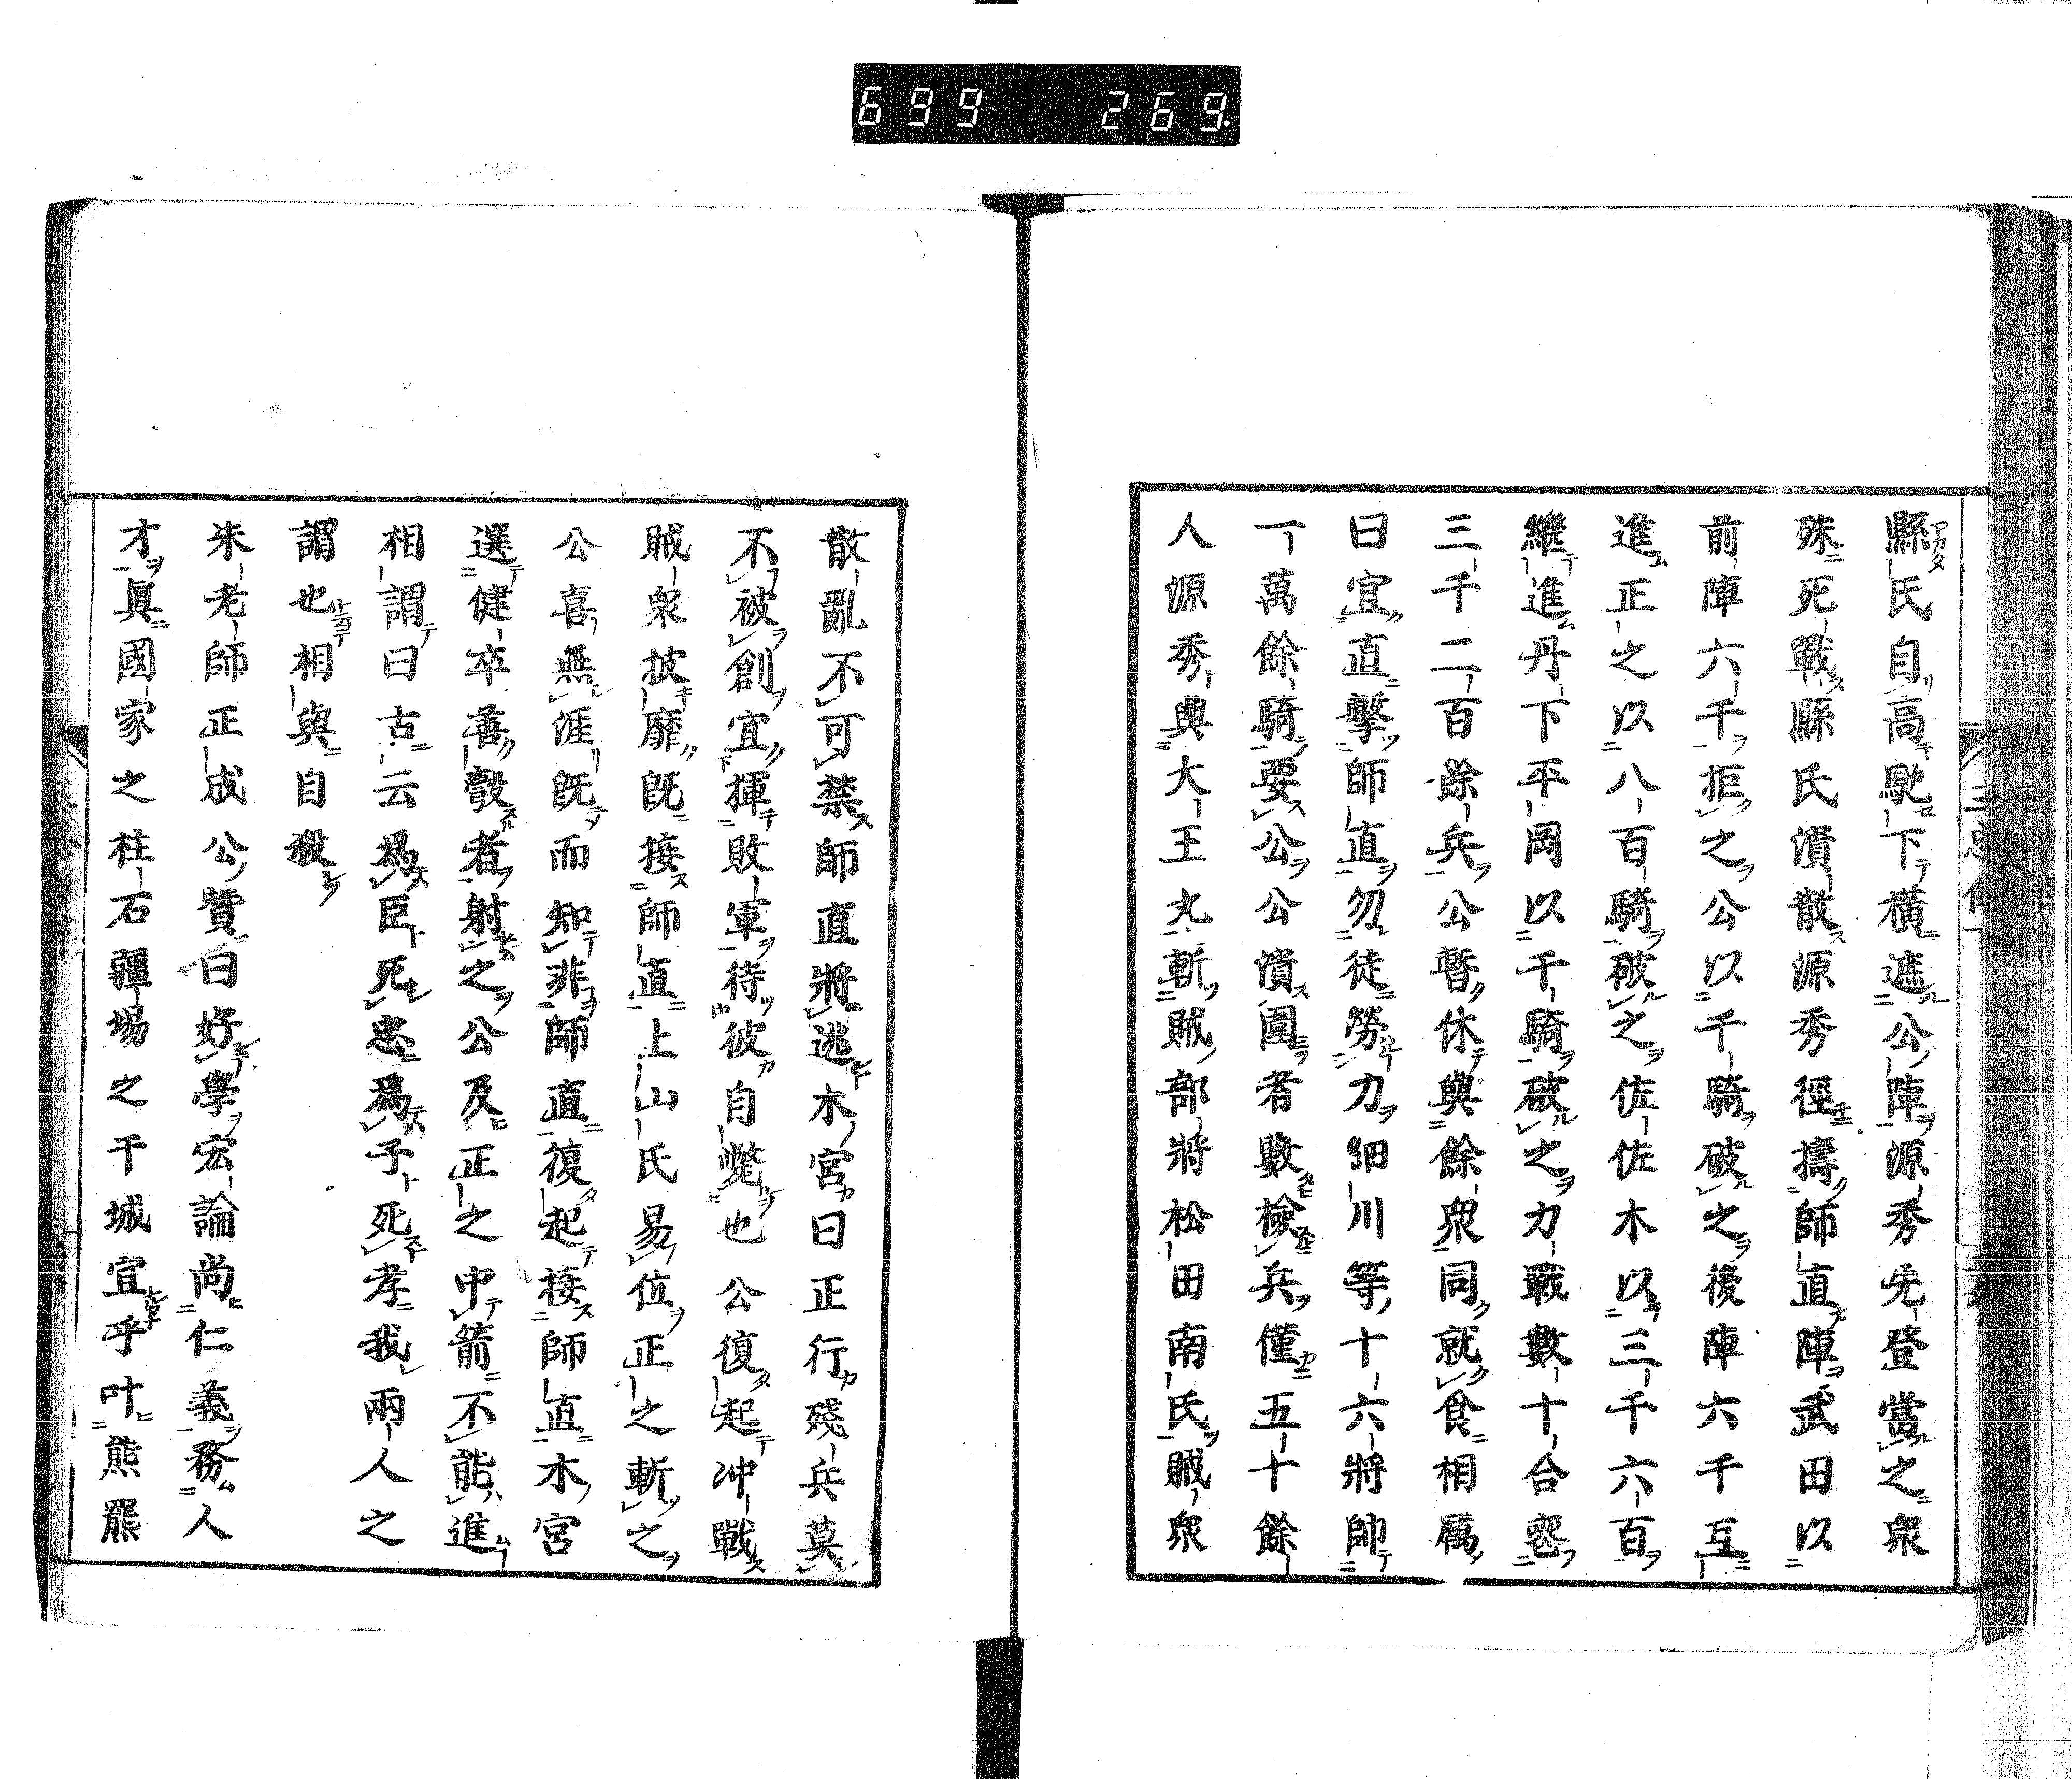 699 269
縣氏自高馳下橫遮公陣源秀先登當之衆
殊死戰縣氏潰散源秀徑擣師直陣武田以
前陣六千拒之公以千騎破之後陣六千互
進正之以八百騎破之佐佐木以三千六百
繼進丹下平岡以千騎破之力戰數十合
三千二百餘兵公暫休與餘衆同就食相厲
曰宜直擊師直勿徒勞力細川等十六將帥
一萬餘騎要公公潰圍者數檢兵僅五十餘
人源秀與大王丸斬賊部將松田南氏賊衆
散亂不可禁師直將逃木宮曰正行殘兵莫
不被創宜揮敗軍待彼自斃也公復起冲戰
賊衆披靡旣接師直上山氏易位正之斬之
公喜無涯旣而知非師直復起接師直木宮
選健卒善彀者射之公及正之中箭不能進
相謂曰古云爲臣死忠爲子死孝我兩人之
謂也相與自殺
朱老師正成公贊曰好學宏論尚仁義務人
才眞國家之柱石疆場之干城宜乎叶熊羆